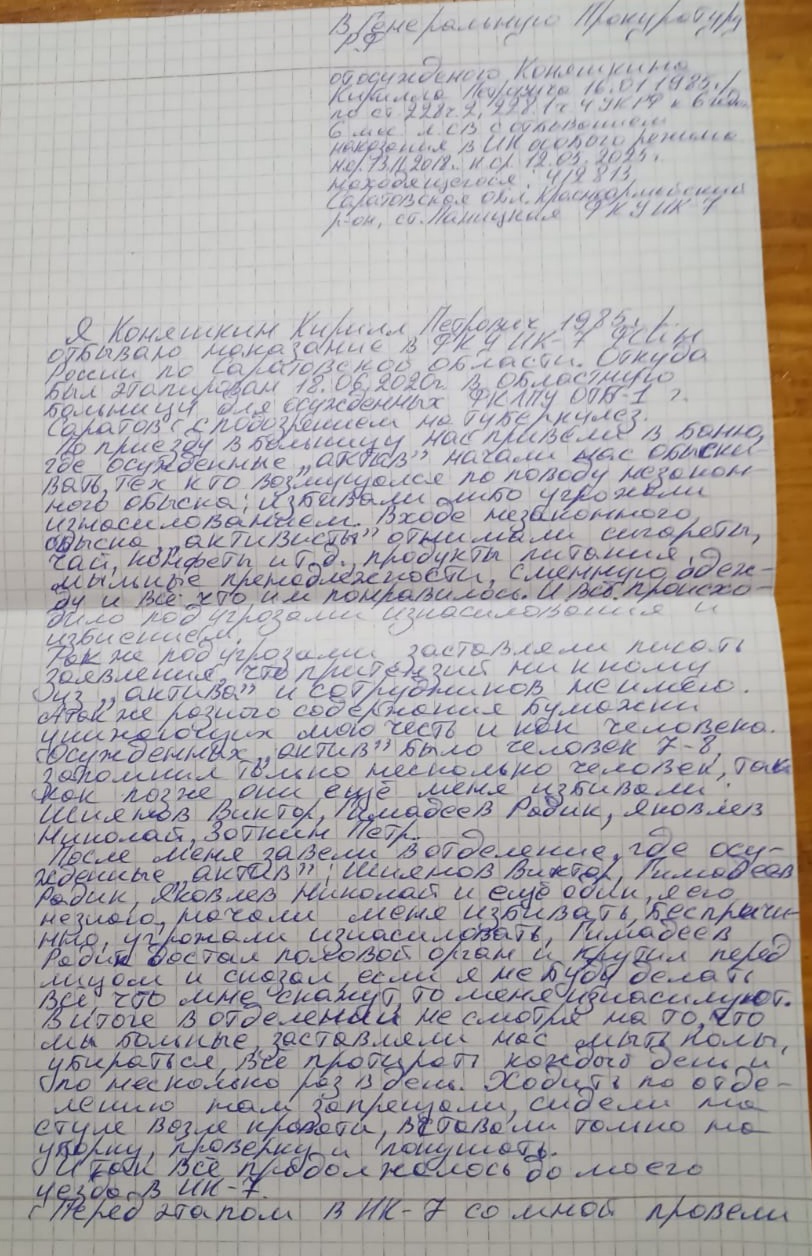 В Генеральную Прокуратуру
РФ
от осужденого Коняшкина
Кирилла Петровича 16.01.1985г./
по ст. 228 ч.2, 228.1 ч.4 УК РФ к 6 годам
6 мес. л.св с отбыванием
наказания в ИК особого режима
н.ср. 13.11.2018г. к.ср. 12.05.2025г.
находящегося: 412813,
Саратовская обл. Красноармейский
р-он, ст. Паницкая ФКУ ИК-7
Я Коняшкин Кирилл Петрович 1985г./
отбываю наказание в ФКУ ИК-7 ФСИН
России по Саратовской области. Откуда
был этапирован 18.06.2020г. в областную
больницу для осужденных ФКЛПУ ОТБ-1 г.
Саратов с подозрением на туберкулез.
По приезду в больницу нас привели в баню,
где осужденные „актив" начали нас обыски-
вать, тех кто возмущался по поводу незакон-
ного обыска; избивали либо угрожали
изнасилованием. В ходе незаконного
обыска „активисты" отнимали сигареты,
чай, конфеты и т.д., продукты питания,
мыльные пренадлежности, сменную одеж-
ду и всё что им понравилось. И всё происхо-
дило под угрозами изнасилования и
избиением.
Так же под угрозами заставляли писать
заявления, что притензий ни к кому
из „актива" и сотрудников не имею.
А так же разного содержания бумажки
унижающих мою честь и как человека.
Осужденных „актив" было человек 7-8,
запомнил только несколько человек, так
как позже они ещё меня избивали:
Шиянов Виктор, Гимадеев Радик, Яковлев
Николай, Зоткин Петр.
После меня завели в отделение, где осу-
жденные „актив"; Шиянов Виктор, Гимадеев
Радик, Яковлев Николай и ещё один, я его
незнаю, начали меня избивать, беспричи-
нно, угрожали изнасиловать, Гимадеев
Радик достал половой орган и крутил перед
лицом и сказал, если я не буду делать
всё что мне скажут, то меня изнасилуют.
В итоге в отделении не смотря на то, что
мы больные, заставляли нас мыть полы,
убираться, всё протирать каждый день и
по несколько раз в день. Ходить по отде-
лению нам запрещали, сидели на
стуле возле кровати, вставали только на
уборку, проверку и покушать.
И так всё продолжалось до моего
уезда в ИК-7.
Перед этапом в ИК-7 со мной провели